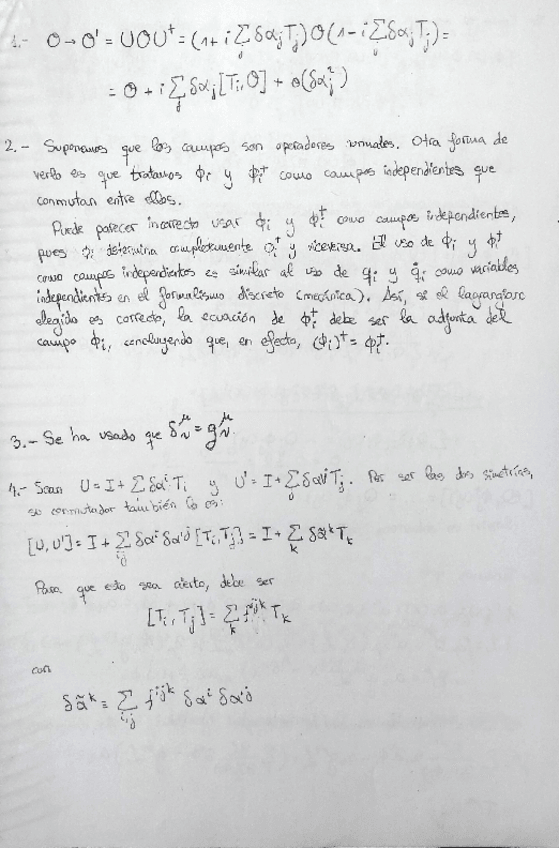 1.- O → O' = UOU† = (1 + i∑_j δα_j T_j) O (1 - i∑_j δα_j T_j) =
= O + i∑_j δα_j [T_i, O] + o(δα_j²)
2.- Suponemos que los campos son operadores normales. Otra forma de
verlo es que tratamos ϕ_i y ϕ_i† como campos independientes que
conmutan entre ellos.
Puede parecer incorrecto usar ϕ_i y ϕ_i† como campos independientes,
pues ϕ_i determina completamente ϕ_i† y viceversa. El uso de ϕ_i y ϕ_i†
como campos independientes es similar al uso de q_i y q̇_i como variables
independientes en el formalismo discreto (mecánica). Así, si el lagrangiano
elegido es correcto, la ecuación de ϕ_i† debe ser la adjunta del
campo ϕ_i, concluyendo que, en efecto, (ϕ_i)† = ϕ_i†.
3.- Se ha usado que δ^μ_ν = g^μ_ν.
4.- Sean U = I + ∑_i δα^i T_i y U' = I + ∑_j δα'^j T_j. Por ser las dos simetrías,
su conmutador también lo es:
[U, U'] = I + ∑_ij δα^i δα'^j [T_i, T_j] = I + ∑_k δα̃^k T_k
Para que esto sea cierto, debe ser
[T_i, T_j] = ∑_k f^ijk T_k
con
δα̃^k ≡ ∑_i,j f^ijk δα^i δα'^j